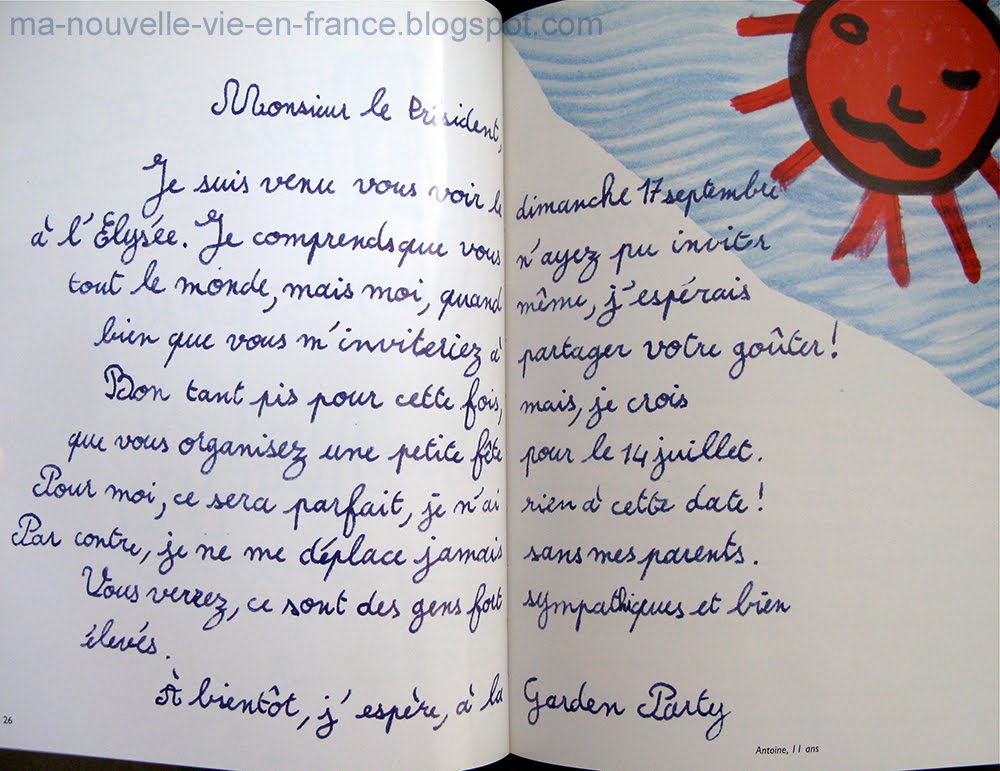 ma-nouvelle-vie-en-france.blogspot.com
Monsieur le Président,
Je suis venu vous voir le dimanche 17 septembre
à l'Élysée. Je comprends que vous n'ayez pu inviter
tout le monde, mais moi, quand même, j'espérais
bien que vous m'inviteriez à partager votre goûter !
Bon tant pis pour cette fois, mais, je crois
que vous organisez une petite fête pour le 14 juillet.
Pour moi, ce sera parfait, je n'ai rien à cette date !
Par contre, je ne me déplace jamais sans mes parents.
Vous verrez, ce sont des gens fort sympathiques et bien
élevés.
À bientôt, j'espère, à la Garden Party
26
Antoine, 11 ans